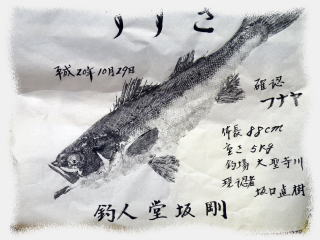 平成20年10月29日
確認
フナヤ
体長 88cm
重さ 5kg
釣場 大聖寺川
現認者
坂口直樹
釣人 堂坂 剛